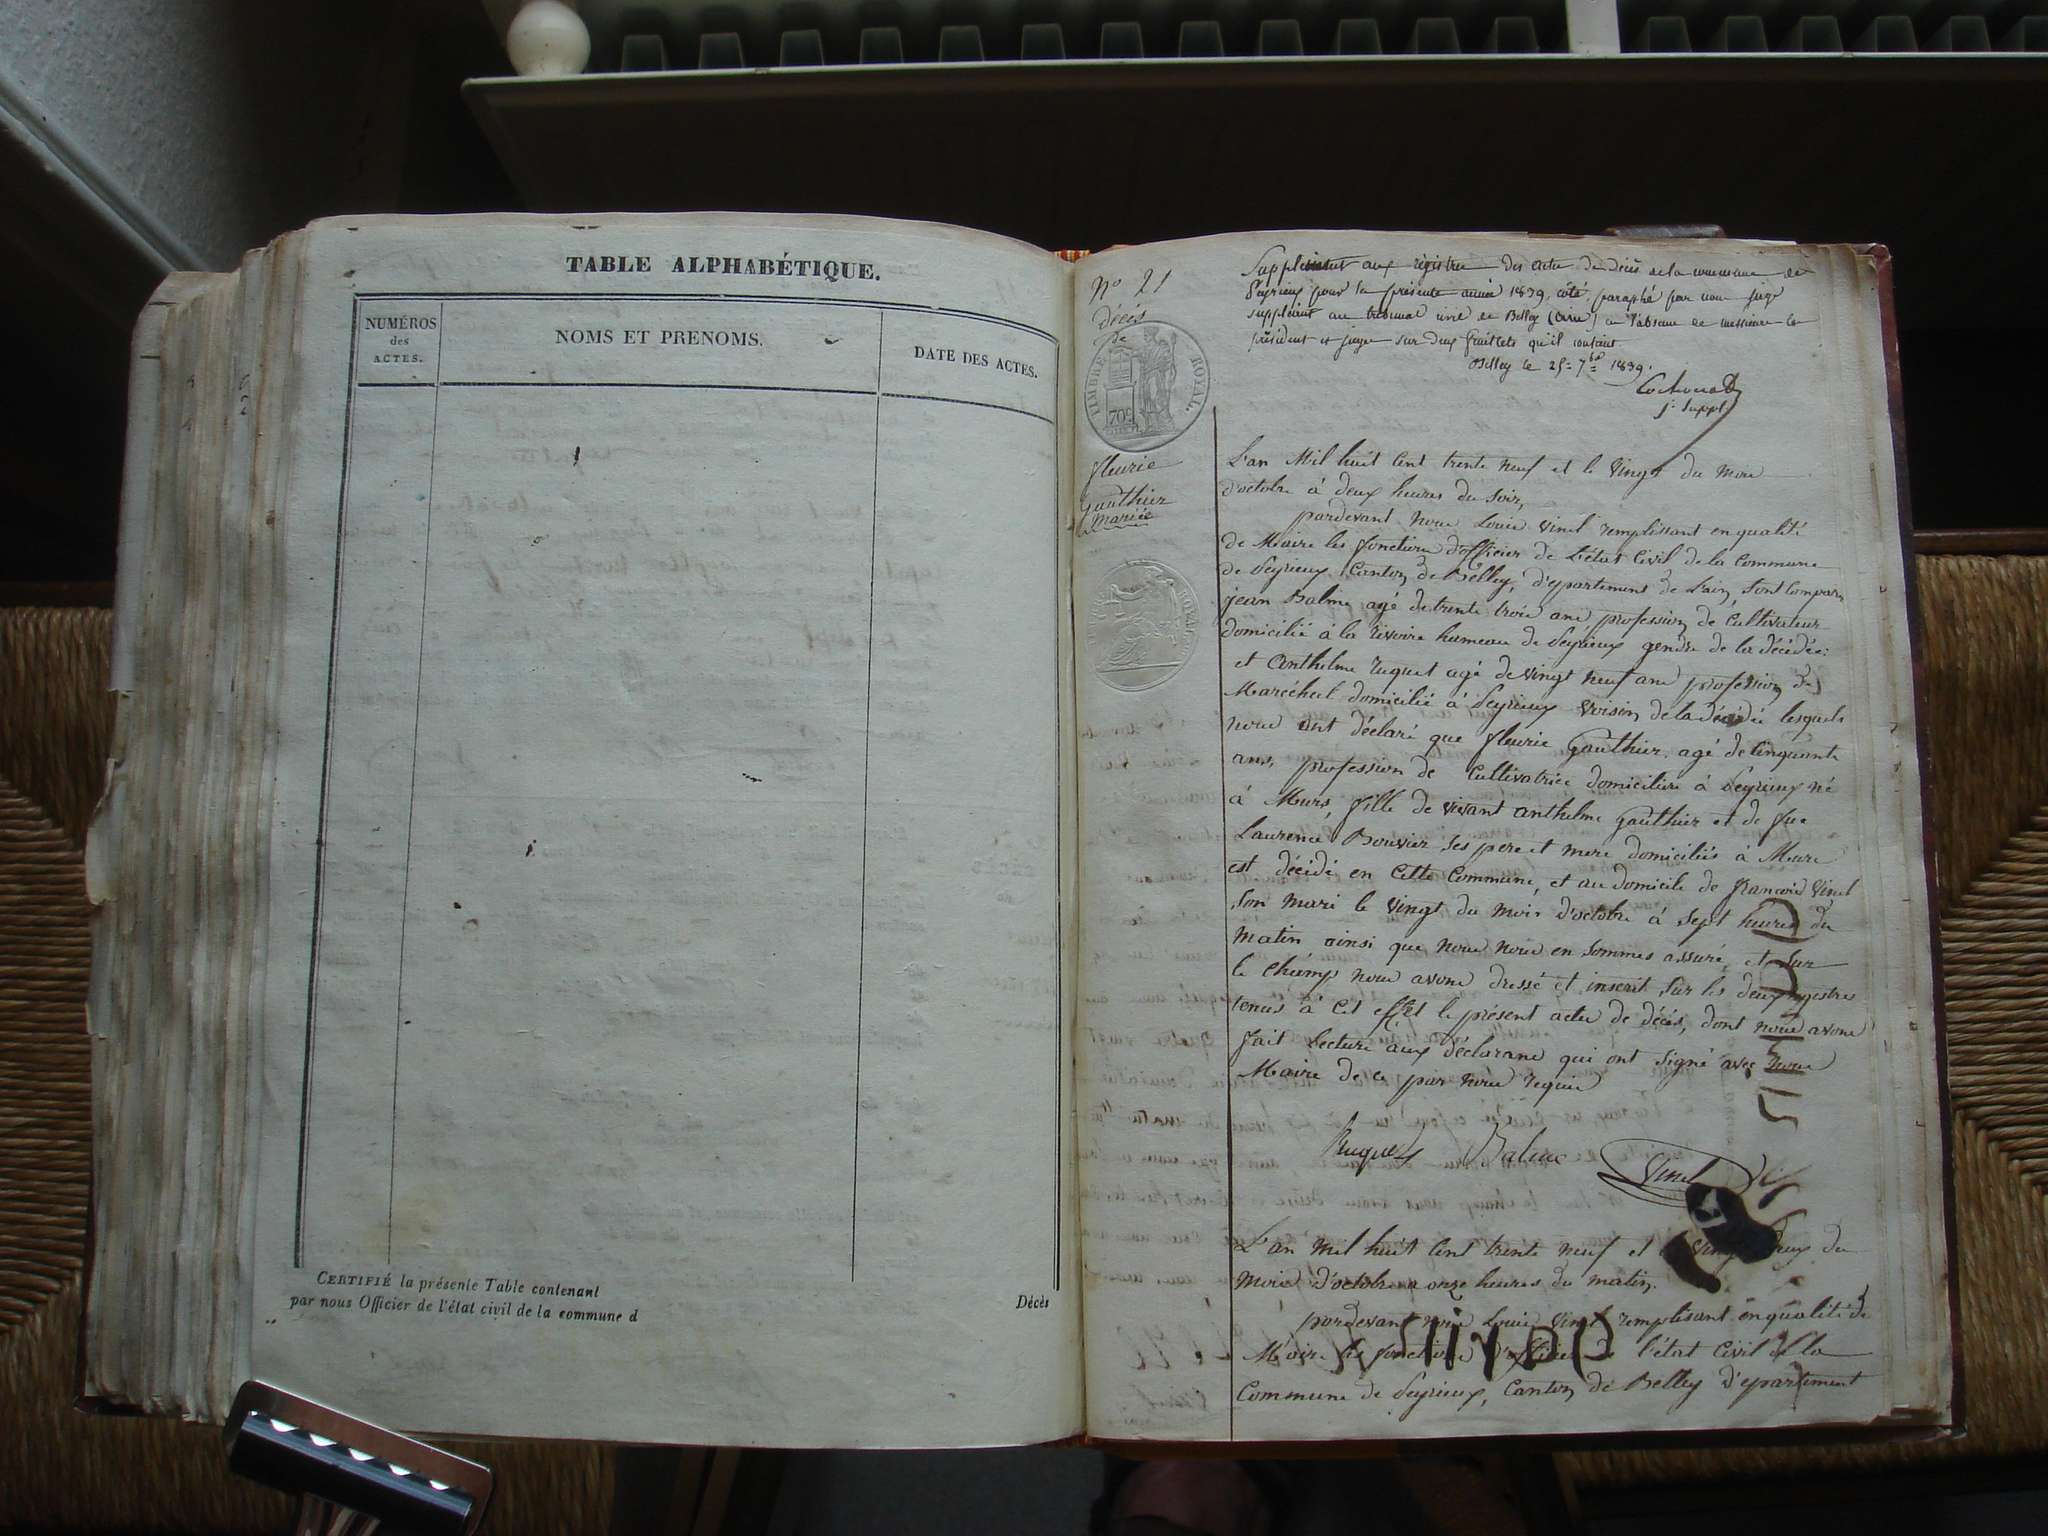 TABLE ALPHABÉTIQUE.
NUMÉROS
des
ACTES.
NOMS ET PRENOMS.
DATE DES ACTES.
CERTIFIÉ la présente Table contenant
par nous Officier de l'état civil de la commune d
Décès
No 21
décès
de
TIMBRE ROYAL.
70c
fleurie
Gauthier
mariée
Supplément aux registre des actes de décès de la commune de
Peyrieux pour la présente année 1839, coté, paraphé par nous juge
suppléant au tribunal civil de Belley (Ain) en l'absence de messieurs les
président et juges sur deux feuillets qu'il contient
Belley le 25 7bre 1839.
1er Suppt
L'an Mil huit Cent trente neuf et le Vingt du mois
d'octobre à deux heures du Soir,
pardevant nous Louis Vinel remplissant en qualité
de Maire les fonctions d'officier de L'état Civil de la Commune
de Peyrieux Canton de Belley, département de L'ain, Sont Comparu
jean Balme agé de trente trois ans, profession de Cultivateur
domicilié à la rivoire hameau de Peyrieux gendre de la décédée:
et anthelme ruquet agé de vingt neuf ans profession de
Maréchal domicilié à Peyrieux Voisin de la décédée lesquels
nous ont déclaré que fleurie Gauthier agé de Cinquante
ans, profession de Cultivatrice domiciliée à Peyrieux né
à Murs, fille de vivant anthelme Gauthier et de fue
Laurence Bouvier Ses pere et mere domiciliés à Murs
est décédé en Cette Commune, et au domicile de françois Vinel
Son mari le Vingt du mois d'octobre à Sept heures du
Matin ainsi que nous nous en Sommes assuré, et Sur
le Chámp nous avons dressé et inscrit Sur les deux registres
tenus à Cet effet le présent acte de décès, dont nous avons
fait Lecture aux déclarans qui ont Signé avec nous
Maire de ce par nous requis
Ruquet Balme Vinel
L'an mil huit Cent trente neuf et le vingt deux du
Mois d'octobre a onze heures du matin.
pardevant nous Louis Vinel remplissant en qualité de
Maire les fonctions d'officier de l'état Civil de la
Commune de Peyrieux, Canton de Belley département